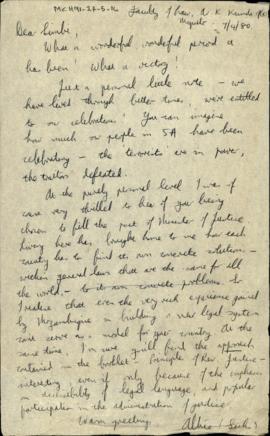 MCH91-27-5-16
Faculty of Law, U
Maputo
7/4/80
Dear Simbi,
What a wonderful wonderful period it
has been! What a victory!
Just a personal little note – we
have lived through bitter times, were entitled
to our celebrations! You can imagine
how much our people in SA have been
celebrating – the terrorists are in power,
the traitors defeated.
At the purely personal level I was of
course very thrilled to hear of you being
chosen to fill the post of Minister of Justice.
Living here has brought home to me how each
country has to find its own concrete solutions –
within general laws that are the same for all
the world – to its own concrete problems. So
I realise that even the very rich experience gained
by Mozambique in building a new legal system
cant serve as a model for your country. At the
same time, I'm sure you'll find the approach
contained in the booklet Principles of Rev. Justice
interesting, even if only because of the emphasis
on accessibility of legal language, and popular
participation in the administration of justice.
Warm greetings,
Albie (Sachs)